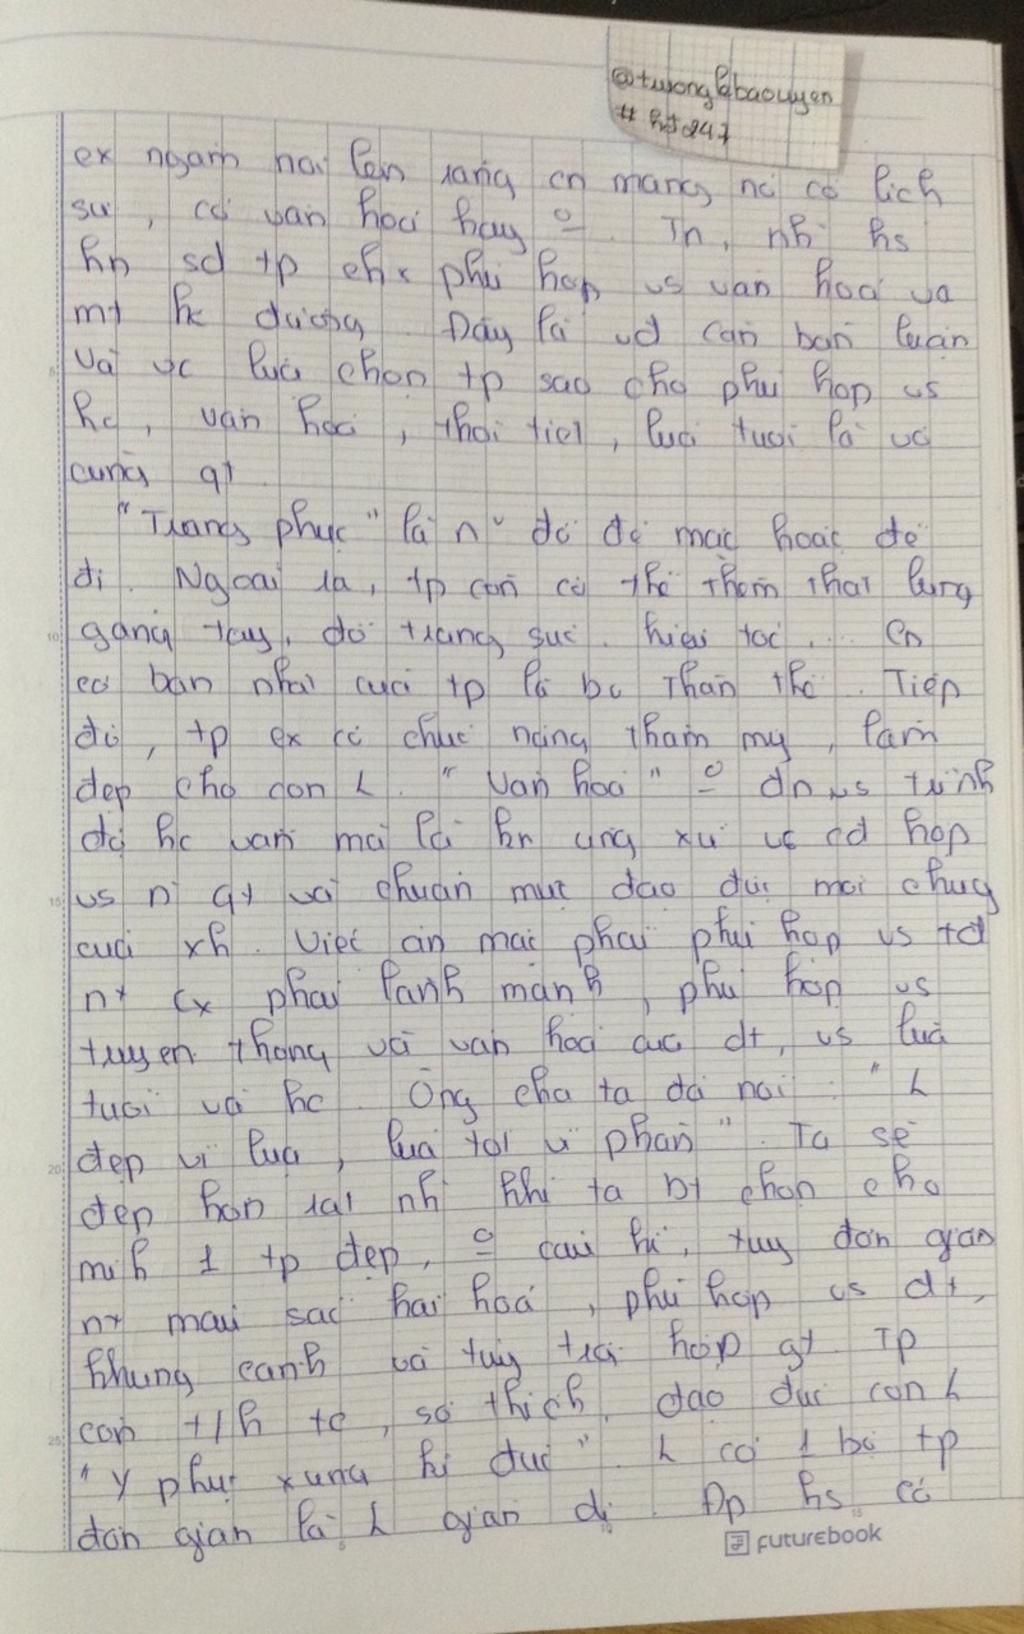 @tuonglebaouyen
# hs247
ex ngầm nói lên rằng cn mang nó có lịch
sử, có văn hoá hay o. Tn, nh hs
hn sd tp ch x phù hợp vs văn hoá và
mt hc đường. Đây là vđ cần bàn luận
và vc lựa chọn tp sao cho phù hợp vs
hc, văn hoá, thời tiết, lứa tuổi là vô
cùng qt
"Trang phục" là n~ đồ để mặc hoặc để
đi. Ngoài ra, tp còn có thể thêm thắt lưng
găng tay, đồ trang sức. kiểu tóc... Cn
cơ bản nhất của tp là bv thân thể. Tiếp
đó, tp cx có chức năng thẩm mỹ, làm
đẹp cho con L. "Văn hoá" o đn vs trình
độ hc vấn mà là hn ứng xử vs cđ hợp
vs n~ qt và chuẩn mực đạo đức mọi chug
của xh. Việc ăn mặc phải phù hợp vs tđ
nt cx phải lành mạnh, phù hợp vs
truyền thống và văn hoá của dt, vs lứa
tuổi và hc. Ông cha ta đã nói: "L
đẹp vì lụa, lúa tốt vì phân". Ta sẽ
đẹp hơn rất nh khi ta bt chọn cho
mih 1 tp đẹp, o cầu kì, tuy đơn giản
nt màu sắc hài hoà, phù hợp vs dt,
khung cảnh và tuỳ trg hợp gt. Tp
còn t/h tc, sở thích, đạo đức con L
"Y phục xứng kì đức". L có 1 bộ tp
đơn giản là L giản dị. Đp hs có
FUTUREBOOK